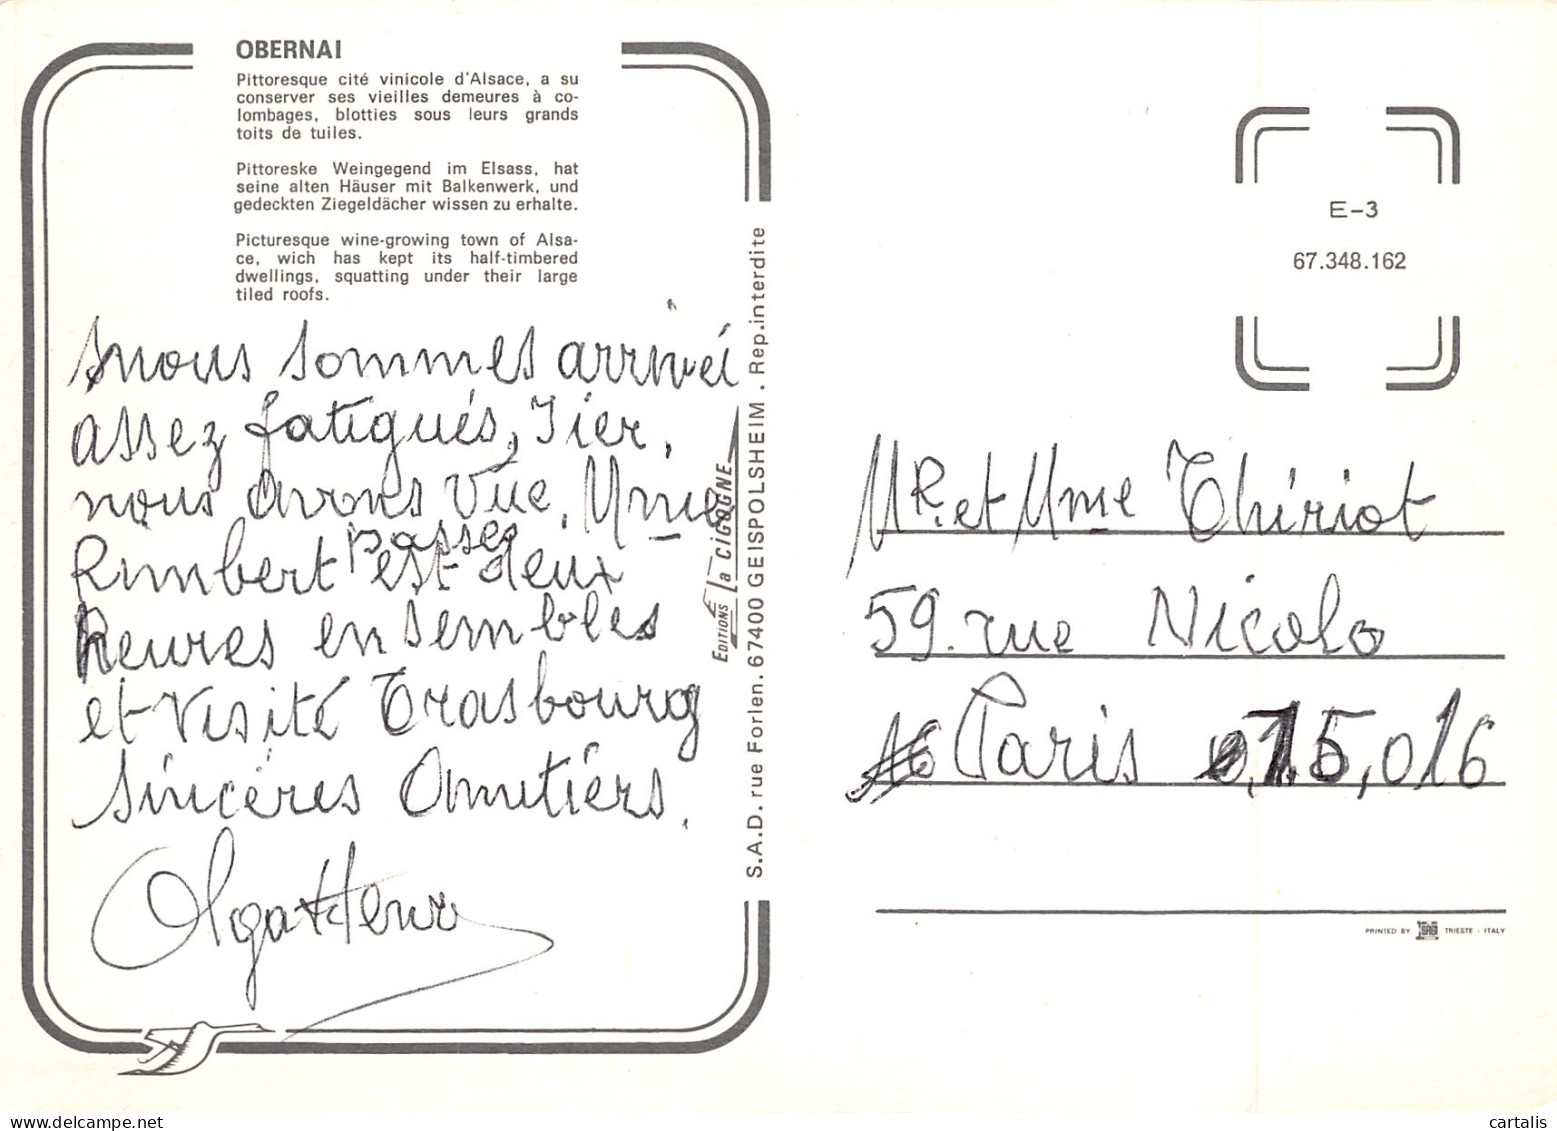 OBERNAI
Pittoresque cité vinicole d'Alsace, a su
conserver ses vieilles demeures à co-
lombages, blotties sous leurs grands
toits de tuiles.
Pittoreske Weingegend im Elsass, hat
seine alten Häuser mit Balkenwerk, und
gedeckten Ziegeldächer wissen zu erhalte.
Picturesque wine-growing town of Alsa-
ce, wich has kept its half-timbered
dwellings, squatting under their large
tiled roofs.
nous sommes arrivéi
assez fatigués, Iier,
nous avons vue, Mme
Rimbert passer est deux
heures ensembles
et visité Trasbourg
sincères Amitiérs.
Olga + Henri
EDITIONS La CIGOGNE
S.A.D. rue Forlen. 67400 GEISPOLSHEIM . Rep.interdite
E-3
67.348.162
MR. et Mme Thiriot
59. rue Nicolo
Paris 15,016
PRINTED BY TRIESTE - ITALY
cartalis